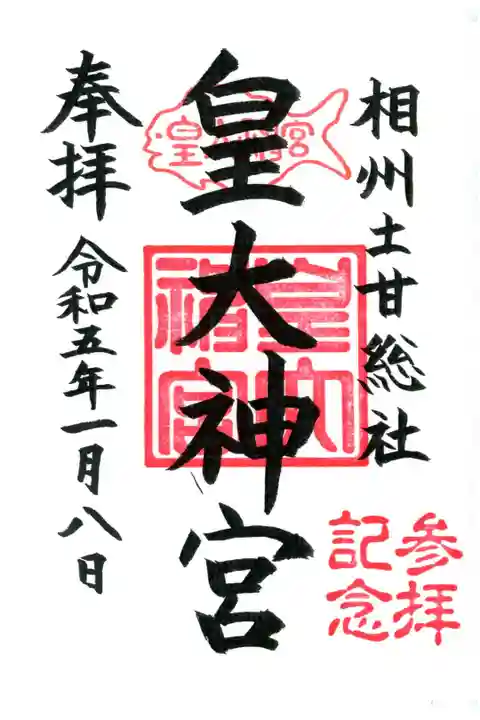 相州土甘総社
皇大神宮
皇大神宮
皇大神宮
奉拝
令和五年一月八日
参拝
記念